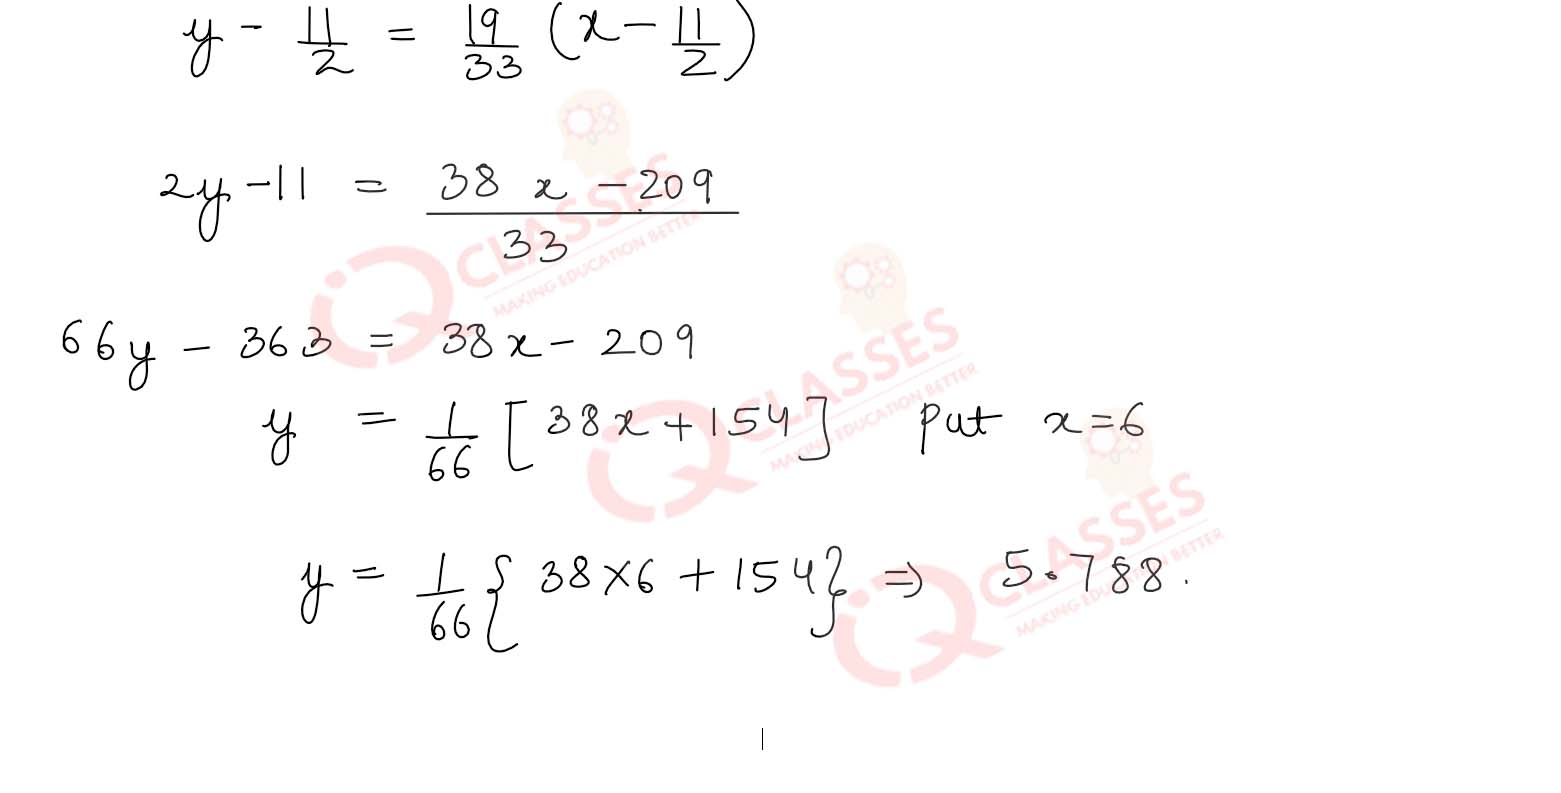 y - 11/2 = 19/33 (x - 11/2)
2y - 11 = (38 x - 209)/33
66y - 363 = 38x - 209
y = 1/66 [38x + 154] put x = 6
y = 1/66 {38 × 6 + 154} ⇒ 5.788.
IQ CLASSES
MAKING EDUCATION BETTER
IQ CLASSES
MAKING EDUCATION BETTER
IQ CLASSES
MAKING EDUCATION BETTER